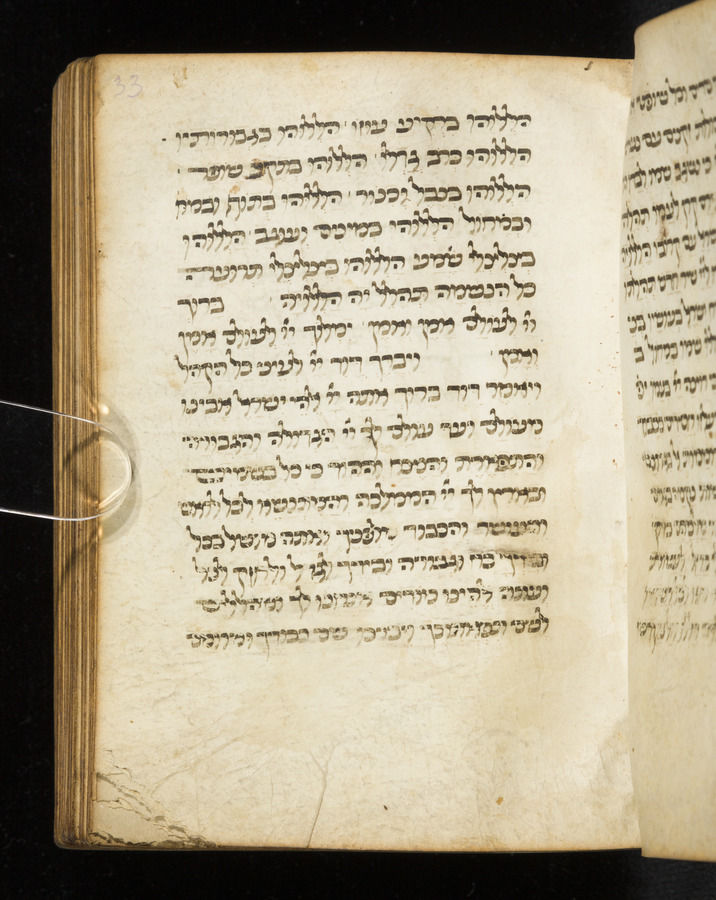 33
הללוהו ברקיע עוזו הללוהו בגבורותיו
הללוהו כרב גדלו הללוהו בתקע שופר
הללוהו בנבל וכנור הללוהו בתוף ובמח
ובמחול הללוהו במינים ועוגב הללוהו
בצלצלי שמע הללוהו בצלצלי תרועה
כל הנשמה תהלל יה הללויה ברוך
יי לעולם אמן ואמן ימלוך יי לעולם אמן
ואמן ויברך דויד יי לעיני כל הקהל
ויאמר דויד ברוך אתה יי אלהי ישראל אבינו
מעולם ועד עולם לך יי הגדולה והגבורה
והתפארת והנצח וההוד כי כל בשמים
ובארץ לך יי הממלכה והמתנשא לכל לראש
והעושר והכבוד מלפניך ואתה מושל בכל
ובידך כח וגבורה ובידך לגדל ולחזק לכל
ועתה אלהינו מודים אנחנו לך ומהללים
לשם תפארתך ויברכו שם כבודך ומרומם